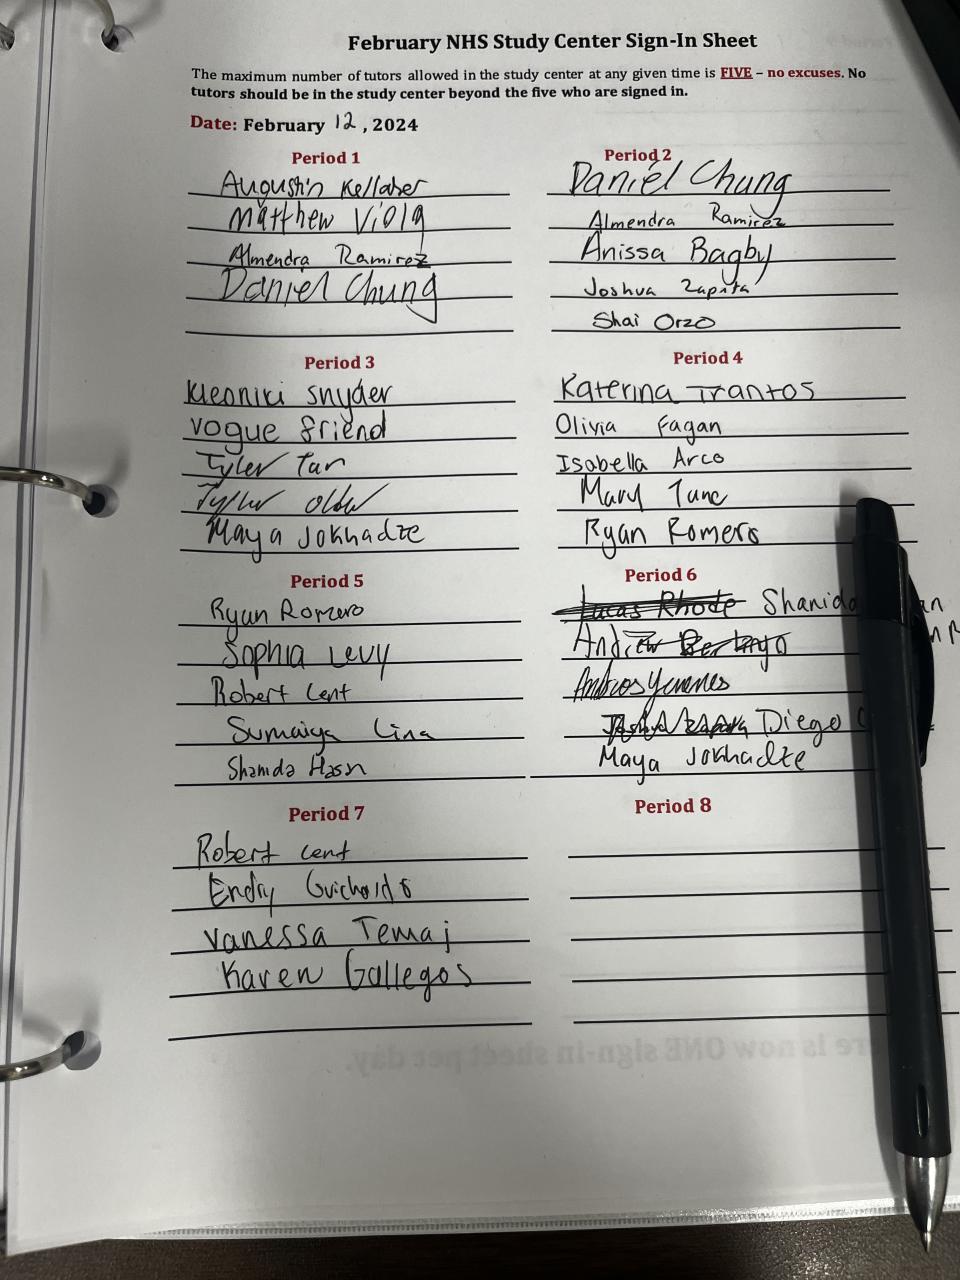 February NHS Study Center Sign-In Sheet
The maximum number of tutors allowed in the study center at any given time is FIVE – no excuses. No
tutors should be in the study center beyond the five who are signed in.
Date: February 12, 2024
Period 1
Augustin Kellaher
Matthew Viola
Almendra Ramirez
Daniel Chung
Period 2
Daniel Chung
Almendra Ramirez
Anissa Bagby
Joshua Zapata
Shai Orzo
Period 3
Kleoniki Snyder
Vogue Friend
Tyler Tan
Maya Jokhadze
Period 4
Katerina Trantos
Olivia Fagan
Isabella Arco
Mary Tunc
Ryan Romero
Period 5
Ryan Romero
Sophia Levy
Robert Cent
Sumaiya Lina
Shanida Hasn
Period 6
Lucas Rhode Shanida
Maya Jokhadze
Diego
Period 7
Robert Cent
Endry Guichardo
Vanessa Temaj
Karen Gallegos
Period 8
is now ONE sign-in sheet per day.